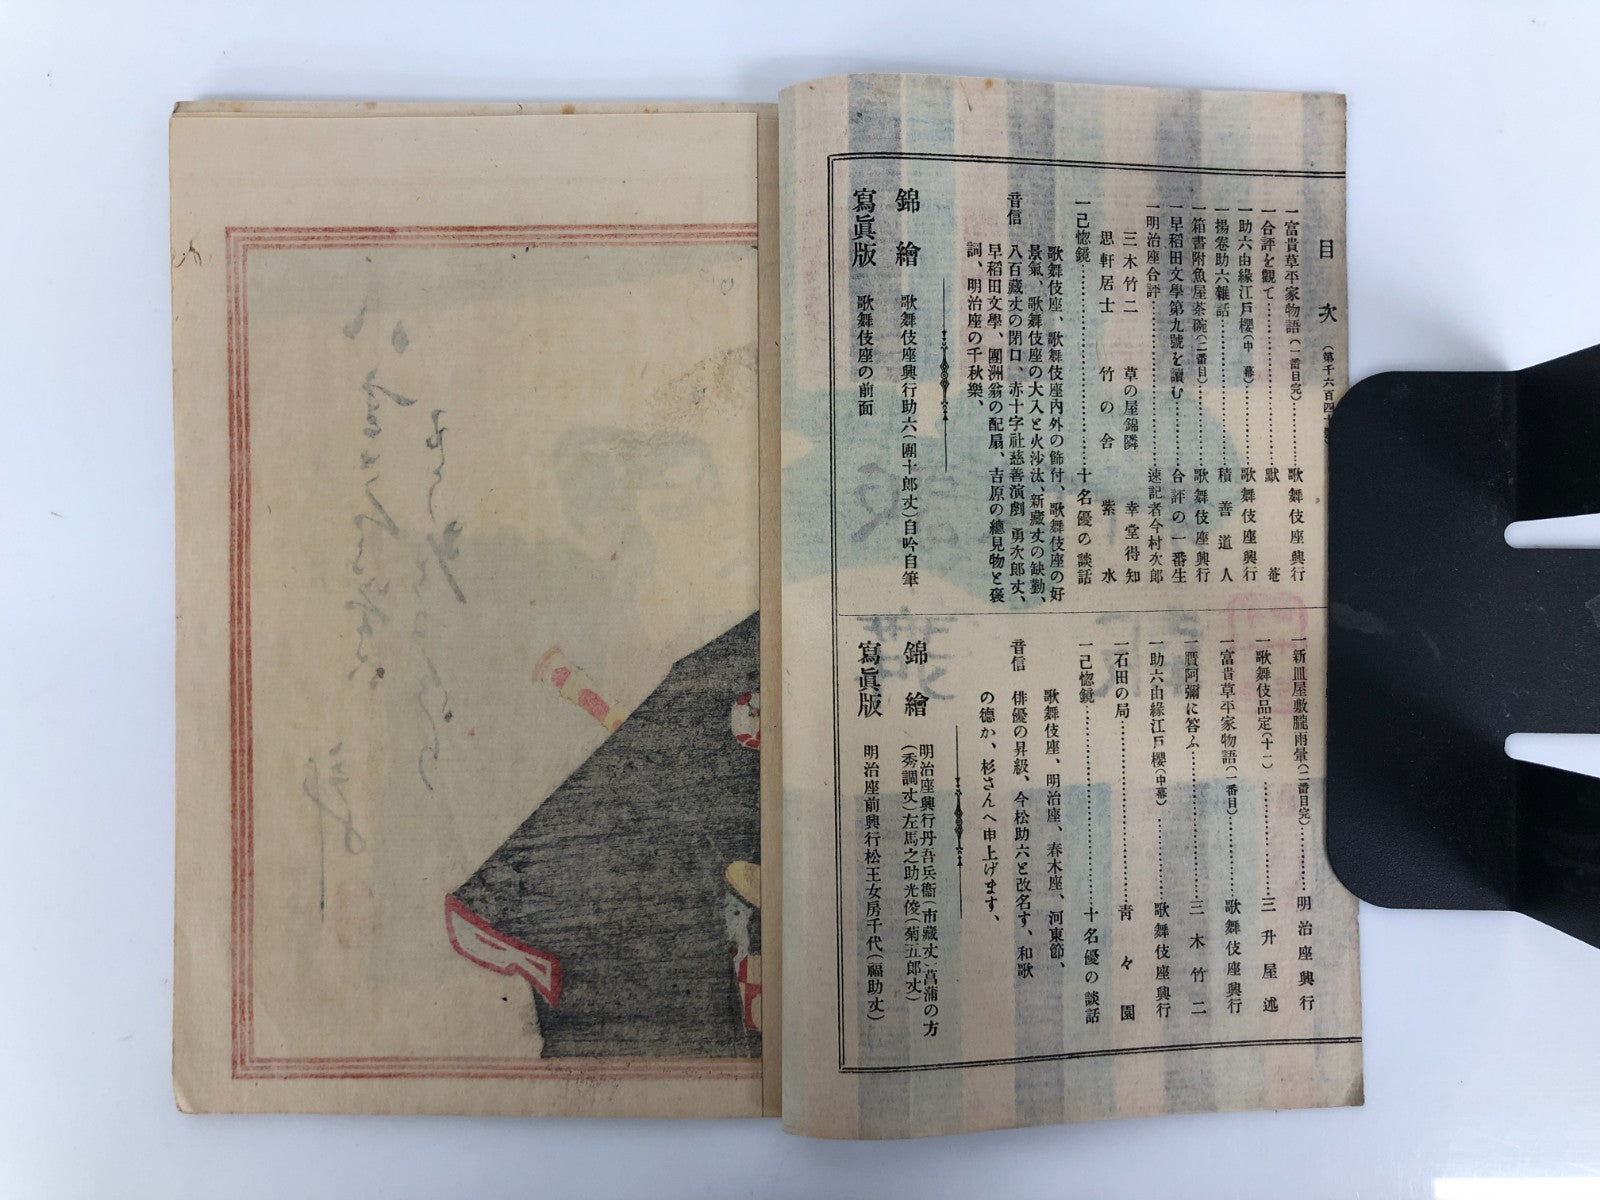 目次
一富貴草平家物語(一番目完)……歌舞伎座興行
一合評を觀て……默菴
一助六由緣江戸櫻(中幕)……歌舞伎座興行
一揚卷助六雜話……積善道人
一箱書附魚屋茶碗(二番目)……歌舞伎座興行
一早稻田文學第九號を讀む……合評の一番生
一明治座合評……速記者今村次郎
三木竹二 草の屋錦隣 幸堂得知
思軒居士 竹の舍 紫水
一己惚鏡……十名優の談話
音信 歌舞伎座、歌舞伎座內外の飾付、歌舞伎座の好
景氣、歌舞伎座の大入と火沙汰、新藏丈の缺勤、
八百藏丈の閉口、赤十字社慈善演劇 勇次郎丈、
早稻田文學、團洲翁の配扇、吉原の總見物と褒
詞、明治座の千秋樂、
錦繪 歌舞伎座興行助六(團十郎丈)自吟自筆
寫眞版 歌舞伎座の前面
一新皿屋敷朧雨暈(二番目完)……明治座興行
一歌舞伎品定(十一)……三升屋述
一富貴草平家物語(一番目)……歌舞伎座興行
一贋阿彌に答ふ……三木竹二
一助六由緣江戸櫻(中幕)……歌舞伎座興行
一石田の局……靑々園
一己惚鏡……十名優の談話
音信 歌舞伎座、明治座、春木座、河東節、
俳優の昇級、今松助六と改名す、和歌
の德か、杉さんへ申上げます、
錦繪 明治座興行丹吾兵衞(市藏丈)菖蒲の方
(秀調丈)左馬之助光俊(菊五郎丈)
寫眞版 明治座前興行松王女房千代(福助丈)